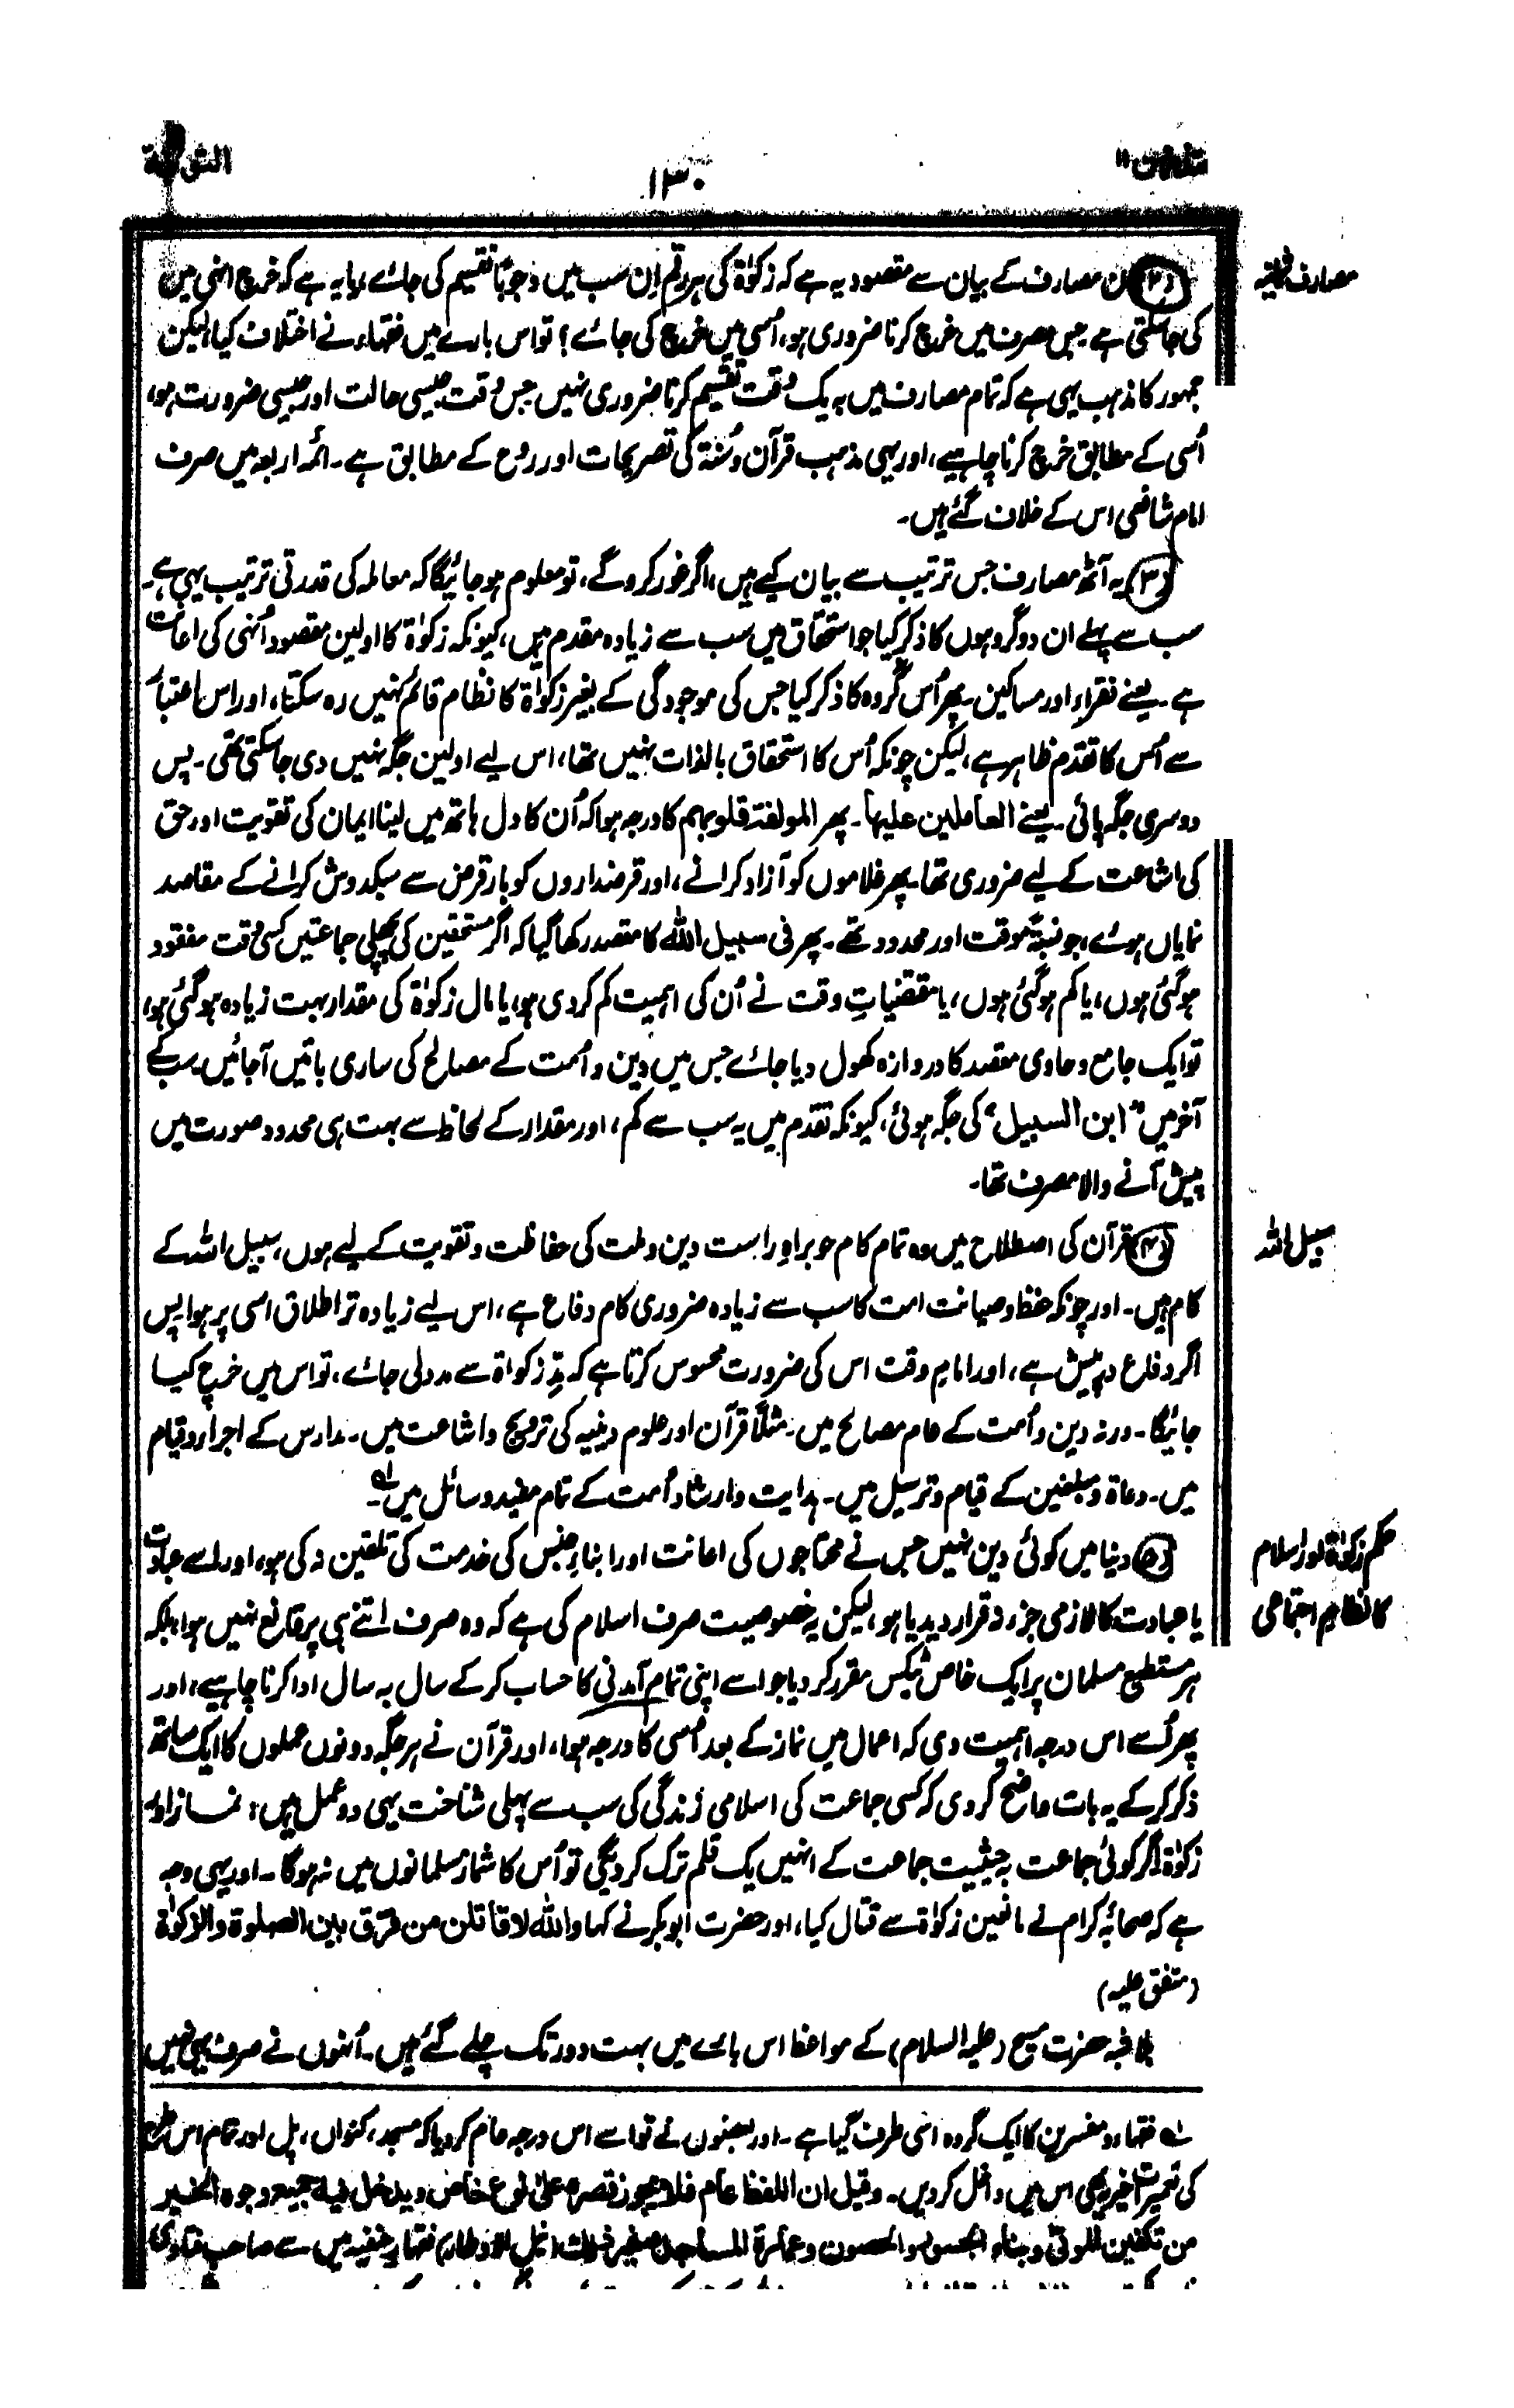 ۱۳۰
(۲) ان مصارف کے بیان سے مقصود یہ ہے کہ زکوٰۃ کی ہر رقم اِن سب میں وجوباً تقسیم کی جائے، یا یہ ہے کہ خرچ انہی میں
کی جا سکتی ہے جس مصرف میں خرچ کرنا ضروری ہو، اُسی میں خرچ کی جائے؟ تو اس بارے میں فقہاء نے اختلاف کیا، لیکن
جمہور کا مذہب یہی ہے کہ تمام مصارف میں بہ یک وقت تقسیم کرنا ضروری نہیں جس وقت جیسی حالت اور جیسی ضرورت ہو،
اُسی کے مطابق خرچ کرنا چاہیے، اور یہی مذہب قرآن و سُنۃ کی تصریحات اور روح کے مطابق ہے۔ ائمہ اربعہ میں صرف
امام شافعی اس کے خلاف گئے ہیں۔
مصارف
(۳) یہ آٹھ مصارف جس ترتیب سے بیان کیے ہیں، اگر غور کرو گے، تو معلوم ہو جائیگا کہ معاملہ کی قدرتی ترتیب یہی ہے۔
سب سے پہلے ان دو گروہوں کا ذکر کیا جو استحقاق میں سب سے زیادہ مقدم ہیں، کیونکہ زکوٰۃ کا اولین مقصود اُنہی کی اعانت
ہے۔ یعنے فقراء اور مساکین۔ پھر اُس گروہ کا ذکر کیا جس کی موجودگی کے بغیر زکوٰۃ کا نظام قائم نہیں رہ سکتا، اور اس اعتبار
سے اُس کا تقدم ظاہر ہے، لیکن چونکہ اُس کا استحقاق بالذات نہیں تھا، اس لیے اولین جگہ نہیں دی جا سکتی تھی۔ پس
دوسری جگہ پائی۔ یعنے العاملین علیہا۔ پھر المولفۃ قلوبہم کا درجہ ہوا کہ اُن کا دل ہاتھ میں لینا ایمان کی تقویت اور حق
کی اشاعت کے لیے ضروری تھا۔ پھر غلاموں کو آزاد کرانے، اور قرضداروں کو بارِ قرض سے سبکدوش کرانے کے مقاصد
نمایاں ہوئے، جو نسبۃً موقت اور محدود تھے۔ پھر فی سبیل اللہ کا مقصد رکھا گیا کہ اگر مستحقین کی پچھلی جماعتیں کسی وقت مفقود
ہو گئی ہوں، یا کم ہو گئی ہوں، یا مقتضیاتِ وقت نے اُن کی اہمیت کم کر دی ہو، یا مال زکوٰۃ کی مقدار بہت زیادہ ہو گئی ہو،
تو ایک جامع و حاوی مقصد کا دروازہ کھول دیا جائے جس میں دین و اُمت کے مصالح کی ساری باتیں آ جائیں۔ سب کے
آخر میں "ابن السبیل" کی جگہ ہوئی، کیونکہ تقدم میں یہ سب سے کم، اور مقدار کے لحاظ سے بہت ہی محدود صورت میں
پیش آنے والا مصرف تھا۔
سبیل اللہ
(۴) قرآن کی اصطلاح میں وہ تمام کام جو براہِ راست دین و ملت کی حفاظت و تقویت کے لیے ہوں، سبیل اللہ کے
کام ہیں۔ اور چونکہ حفظ و صیانت امت کا سب سے زیادہ ضروری کام دفاع ہے، اس لیے زیادہ تر اطلاق اسی پر ہوا۔ پس
اگر دفاع درپیش ہے، اور امامِ وقت اس کی ضرورت محسوس کرتا ہے کہ مدِّ زکواۃ سے مدد لی جائے، تو اس میں خرچ کیا
جائیگا۔ ورنہ دین و اُمت کے عام مصالح میں۔ مثلاً قرآن اور علوم دینیہ کی ترویج و اشاعت میں۔ مدارس کے اجراء و قیام
میں۔ دعاۃ و مبلغین کے قیام و ترسیل میں۔ ہدایت و ارشاد اُمت کے تمام مفید وسائل میں لہ۔
حکم زکوٰۃ اور اسلام
کا نظامِ اجتماعی
(۵) دنیا میں کوئی دین نہیں جس نے محتاجوں کی اعانت اور ابناء جنس کی خدمت کی تلقین نہ کی ہو، اور اسے عبادت
یا عبادت کا لازمی جزء نہ قرار دیدیا ہو، لیکن یہ خصوصیت صرف اسلام کی ہے کہ وہ صرف اتنے ہی پر قانع نہیں ہوا، بلکہ
ہر مستطیع مسلمان پر ایک خاص ٹیکس مقرر کر دیا جو اسے اپنی تمام آمدنی کا حساب کر کے سال بہ سال ادا کرنا چاہیے، اور
پھر اُسے اس درجہ اہمیت دی کہ اعمال میں نماز کے بعد اُسی کا درجہ ہوا، اور قرآن نے ہر جگہ دونوں عملوں کا ایک ساتھ
ذکر کر کے یہ بات واضح کر دی کہ کسی جماعت کی اسلامی زندگی کی سب سے پہلی شناخت یہی دو عمل ہیں: نماز اور
زکوٰۃ اگر کوئی جماعت بہ حیثیت جماعت کے انہیں یک قلم ترک کر دیگی تو اُس کا شمار مسلمانوں میں نہ ہوگا۔ اور یہی وجہ
ہے کہ صحابۂ کرام نے مانعین زکوٰۃ سے قتال کیا، اور حضرت ابوبکر نے کہا واللہ لاقاتلن من فرّق بین الصلوۃ والزکوٰۃ
(متفق علیہ)
بلاشبہ حضرت مسیح (علیہ السلام) کے مواعظ اس بارے میں بہت دور تک چلے گئے ہیں۔ اُنہوں نے صرف یہی نہیں
لہ فقہاء و مفسرین کا ایک گروہ اسی طرف گیا ہے۔ اور بعضوں نے تو اسے اس درجہ عام کر دیا کہ مسجد، کنواں، پل اور تمام اس طرح
کی تعمیرات خیریہ بھی اس میں داخل کر دیں۔ وقیل ان اللفظ عام فلا یجوز قصرہ علیٰ نوع خاص ویدخل فیہ جمیع وجوہ الخیر
من تکفین الموتیٰ وبناء الجسور والحصون وعمارۃ المساجد وغیر ذلک (نیل الاوطار) فقہاءِ حنفیہ میں سے صاحب فتاویٰ